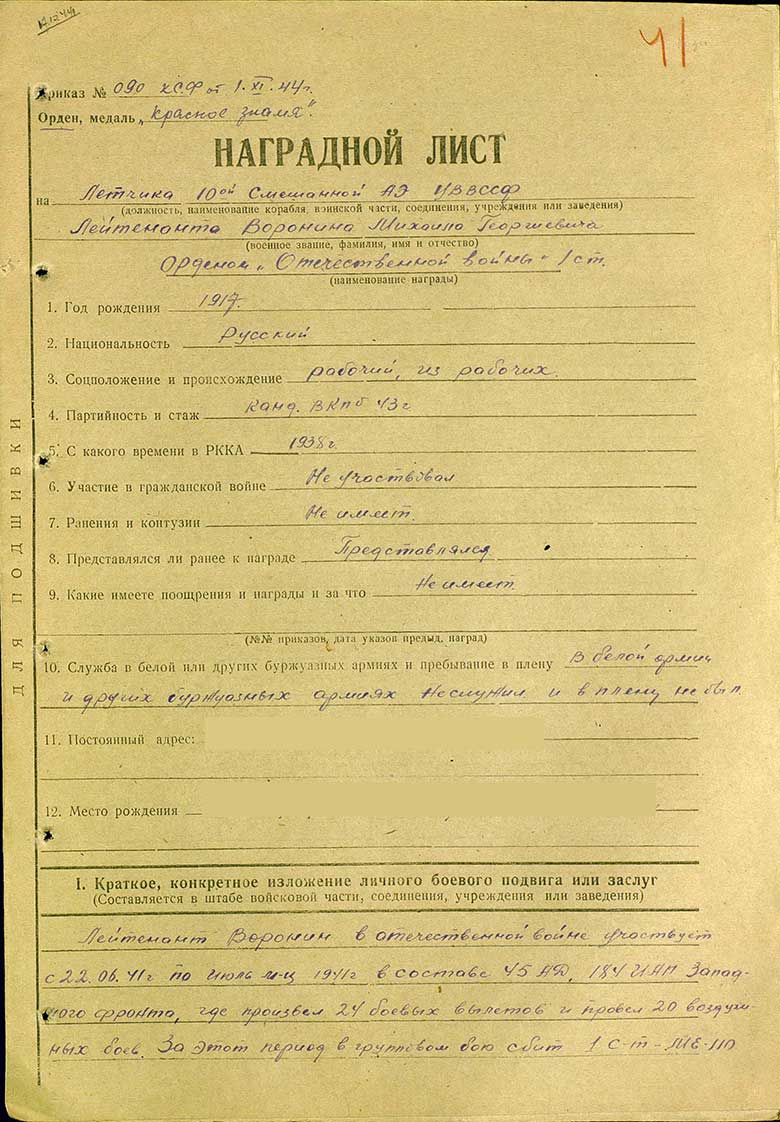 41
Приказ № 090 КСФ от 1.XI.44г.
Орден, медаль „Красное знамя".
НАГРАДНОЙ ЛИСТ
на Летчика 10ой Смешанной АЭ УВВССФ
(должность, наименование корабля, воинской части, соединения, учреждения или заведения)
Лейтенанта Воронина Михаила Георгиевича
(военное звание, фамилия, имя и отчество)
Орденом „Отечественной войны" 1 ст.
(наименование награды)
1. Год рождения 1917.
2. Национальность Русский
3. Соцположение и происхождение рабочий, из рабочих.
4. Партийность и стаж Канд. ВКПб 43г
5. С какого времени в РККА 1938г.
6. Участие в гражданской войне Не участвовал
7. Ранения и контузии Не имеет.
8. Представлялся ли ранее к награде Представлялся
9. Какие имеете поощрения и награды и за что Не имеет.
(№№ приказов, дата указов предыд. наград)
10. Служба в белой или других буржуазных армиях и пребывание в плену В белой армии
и других буржуазных армиях неслужил и в плену не был.
11. Постоянный адрес:
12. Место рождения
ДЛЯ ПОДШИВКИ
I. Краткое, конкретное изложение личного боевого подвига или заслуг
(Составляется в штабе войсковой части, соединения, учреждения или заведения)
Лейтенант Воронин в отечественной войне участвует
с 22.06.41г по Июль м-ц 1941г в составе 45 АД, 184 ИАП Запад-
ного фронта, где произвел 24 боевых вылетов и провел 20 воздуш-
ных боев. За этот период в групповом бою сбит 1 с-т-МЕ-110